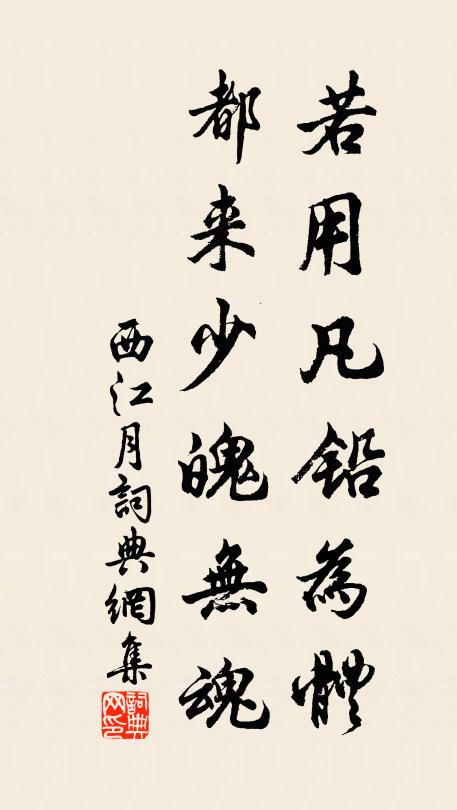 若用凡鉛為體
都来少魄無魂
西江月詞典網集
詞典網印